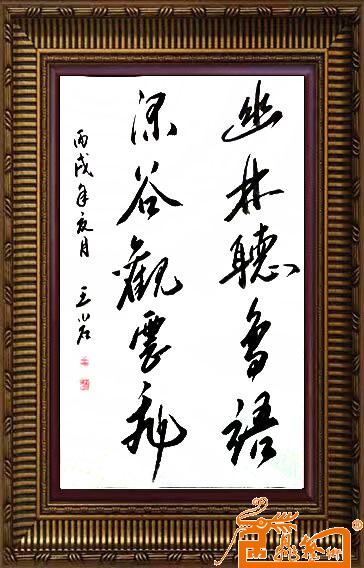 幽林聽鳥語
深谷觀雲飛
丙戌年夏月 王